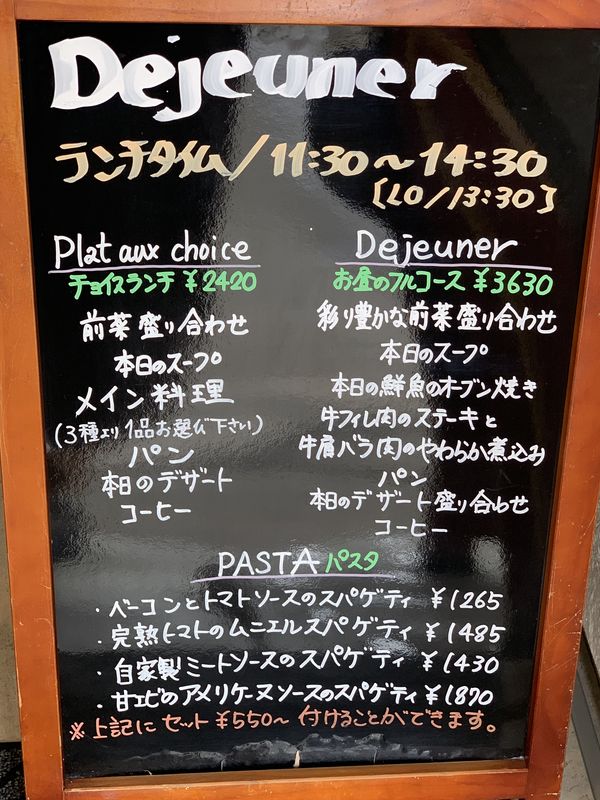 Dejeuner
ランチタイム/11:30~14:30
[LO/13:30]
Plat aux choice
チョイスランチ ¥2420
前菜盛り合わせ
本日のスープ
メイン料理
(3種より1品お選び下さい)
パン
本日のデザート
コーヒー
Dejeuner
お昼のフルコース ¥3630
彩り豊かな前菜盛り合わせ
本日のスープ
本日の鮮魚のオーブン焼き
牛フィレ肉のステーキと
牛肩バラ肉のやわらか煮込み
パン
本日のデザート盛り合わせ
コーヒー
PASTA パスタ
・ベーコンとトマトソースのスパゲティ ¥1265
・完熟トマトのムニエルスパゲティ ¥1485
・自家製ミートソースのスパゲティ ¥1430
・甘エビのアメリケーヌソースのスパゲティ ¥1870
※上記にセット¥550~付けることができます。